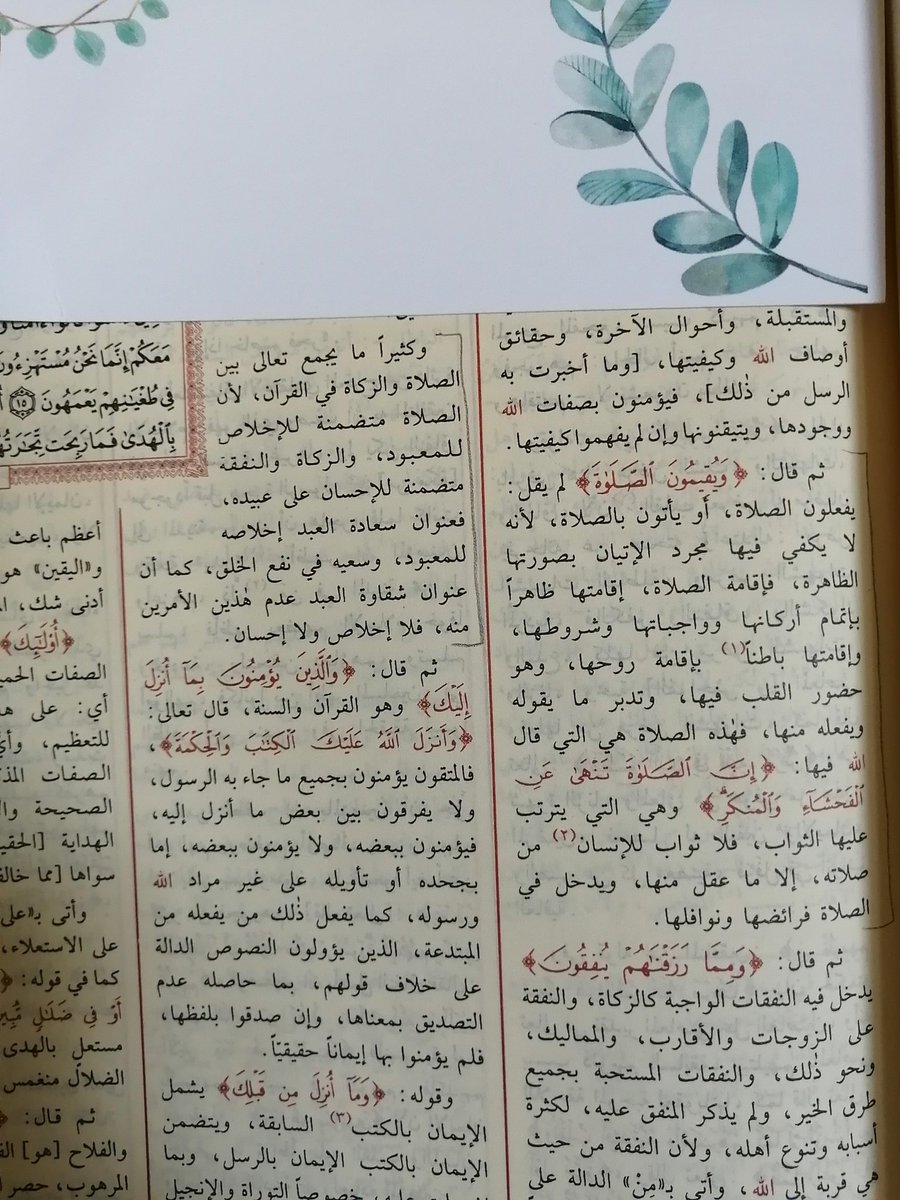 والمستقبلة، وأحوال الآخرة، وحقائق
أوصاف الله وكيفيتها، [وما أخبرت به
الرسل من ذٰلك]، فيؤمنون بصفات الله
ووجودها، ويتيقنونها وإن لم يفهموا كيفيتها.
ثم قال: ﴿وَيُقِيمُونَ ٱلصَّلَوٰةَ﴾ لم يقل:
يفعلون الصلاة، أو يأتون بالصلاة، لأنه
لا يكفي فيها مجرد الإتيان بصورتها
الظاهرة، فإقامة الصلاة، إقامتها ظاهراً
بإتمام أركانها وواجباتها وشروطها،
وإقامتها باطناً(١) بإقامة روحها، وهو
حضور القلب فيها، وتدبر ما يقوله
ويفعله منها، فهٰذه الصلاة هي التي قال
الله فيها: ﴿إِنَّ ٱلصَّلَوٰةَ تَنْهَىٰ عَنِ
ٱلْفَحْشَآءِ وَٱلْمُنكَرِ﴾ وهي التي يترتب
عليها الثواب، فلا ثواب للإنسان(٢) من
صلاته، إلا ما عقل منها، ويدخل في
الصلاة فرائضها ونوافلها.
ثم قال: ﴿وَمِمَّا رَزَقْنَٰهُمْ يُنفِقُونَ﴾
يدخل فيه النفقات الواجبة كالزكاة، والنفقة
على الزوجات والأقارب، والمماليك،
ونحو ذٰلك، والنفقات المستحبة بجميع
طرق الخير، ولم يذكر المنفق عليه، لكثرة
أسبابه وتنوع أهله، ولأن النفقة من حيث
هي قربة إلى الله، وأتى بـ«مِنْ» الدالة على
وكثيراً ما يجمع تعالى بين
الصلاة والزكاة في القرآن، لأن
الصلاة متضمنة للإخلاص
للمعبود، والزكاة والنفقة
متضمنة للإحسان على عبيده،
فعنوان سعادة العبد إخلاصه
للمعبود، وسعيه في نفع الخلق، كما أن
عنوان شقاوة العبد عدم هٰذين الأمرين
منه، فلا إخلاص ولا إحسان.
ثم قال: ﴿وَٱلَّذِينَ يُؤْمِنُونَ بِمَآ أُنزِلَ
إِلَيْكَ﴾ وهو القرآن والسنة، قال تعالى:
﴿وَأَنزَلَ ٱللَّهُ عَلَيْكَ ٱلْكِتَٰبَ وَٱلْحِكْمَةَ﴾،
فالمتقون يؤمنون بجميع ما جاء به الرسول،
ولا يفرقون بين بعض ما أنزل إليه،
فيؤمنون ببعضه، ولا يؤمنون ببعضه، إما
بجحده أو تأويله على غير مراد الله
ورسوله، كما يفعل ذٰلك من يفعله من
المبتدعة، الذين يؤولون النصوص الدالة
على خلاف قولهم، بما حاصله عدم
التصديق بمعناها، وإن صدقوا بلفظها،
فلم يؤمنوا بها إيماناً حقيقيّاً.
وقوله: ﴿وَمَآ أُنزِلَ مِن قَبْلِكَ﴾ يشمل
الإيمان بالكتب(٣) السابقة، ويتضمن
الإيمان بالكتب الإيمان بالرسل، وبما
خصوصاً التوراة والإنجيل
مَعَكُمْ إِنَّمَا نَحْنُ مُسْتَهْزِءُونَ
فِي طُغْيَٰنِهِمْ يَعْمَهُونَ ١٥
بِٱلْهُدَىٰ فَمَا رَبِحَت تِّجَٰرَتُهُمْ
أعظم باعث
و«اليقين» هو
أدنى شك،
﴿أُوْلَٰٓئِكَ﴾
الصفات
أي: على
للتعظيم،
الصفات
الصحيحة
الهداية
سواها [مما
وأتى بـ«على
على الاستعلاء،
كما في قوله:
أَوْ فِي ضَلَٰلٍ مُّبِينٍ
مستعل بالهدى
الضلال منغمس
ثم قال:
والفلاح [هو]
المرهوب،